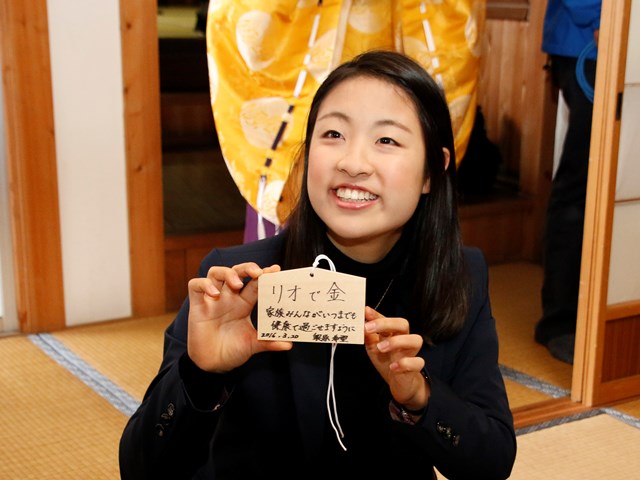 リオで金
家族みんながいつまでも
健康で過ごせますように
2016.2.20